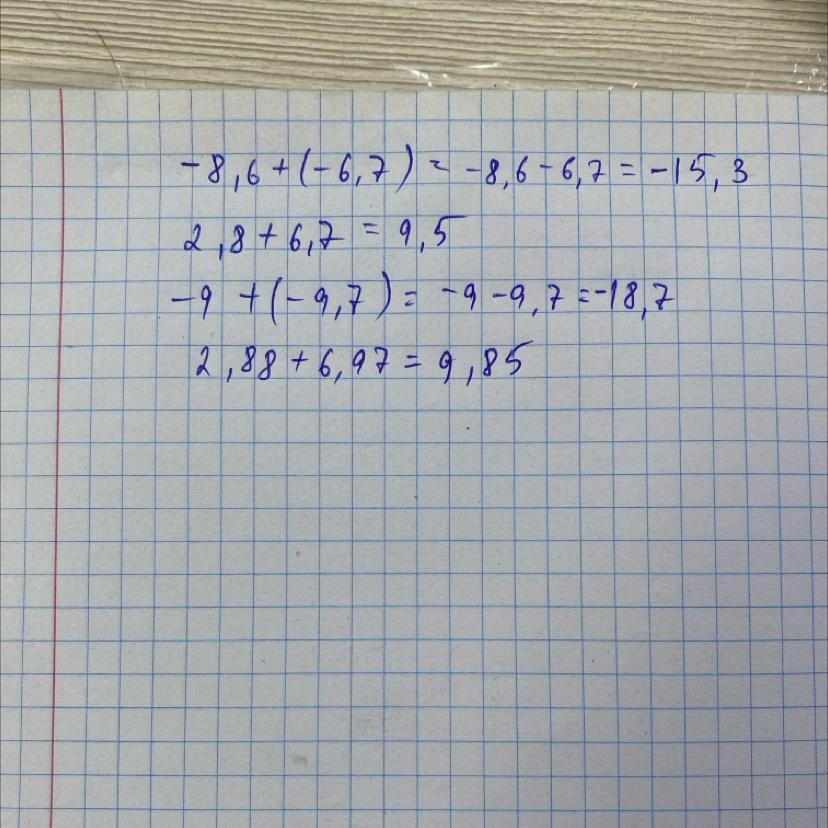 -8,6+(-6,7)=-8,6-6,7=-15,3
2,8+6,7=9,5
-9+(-9,7)=-9-9,7=-18,7
2,88+6,97=9,85